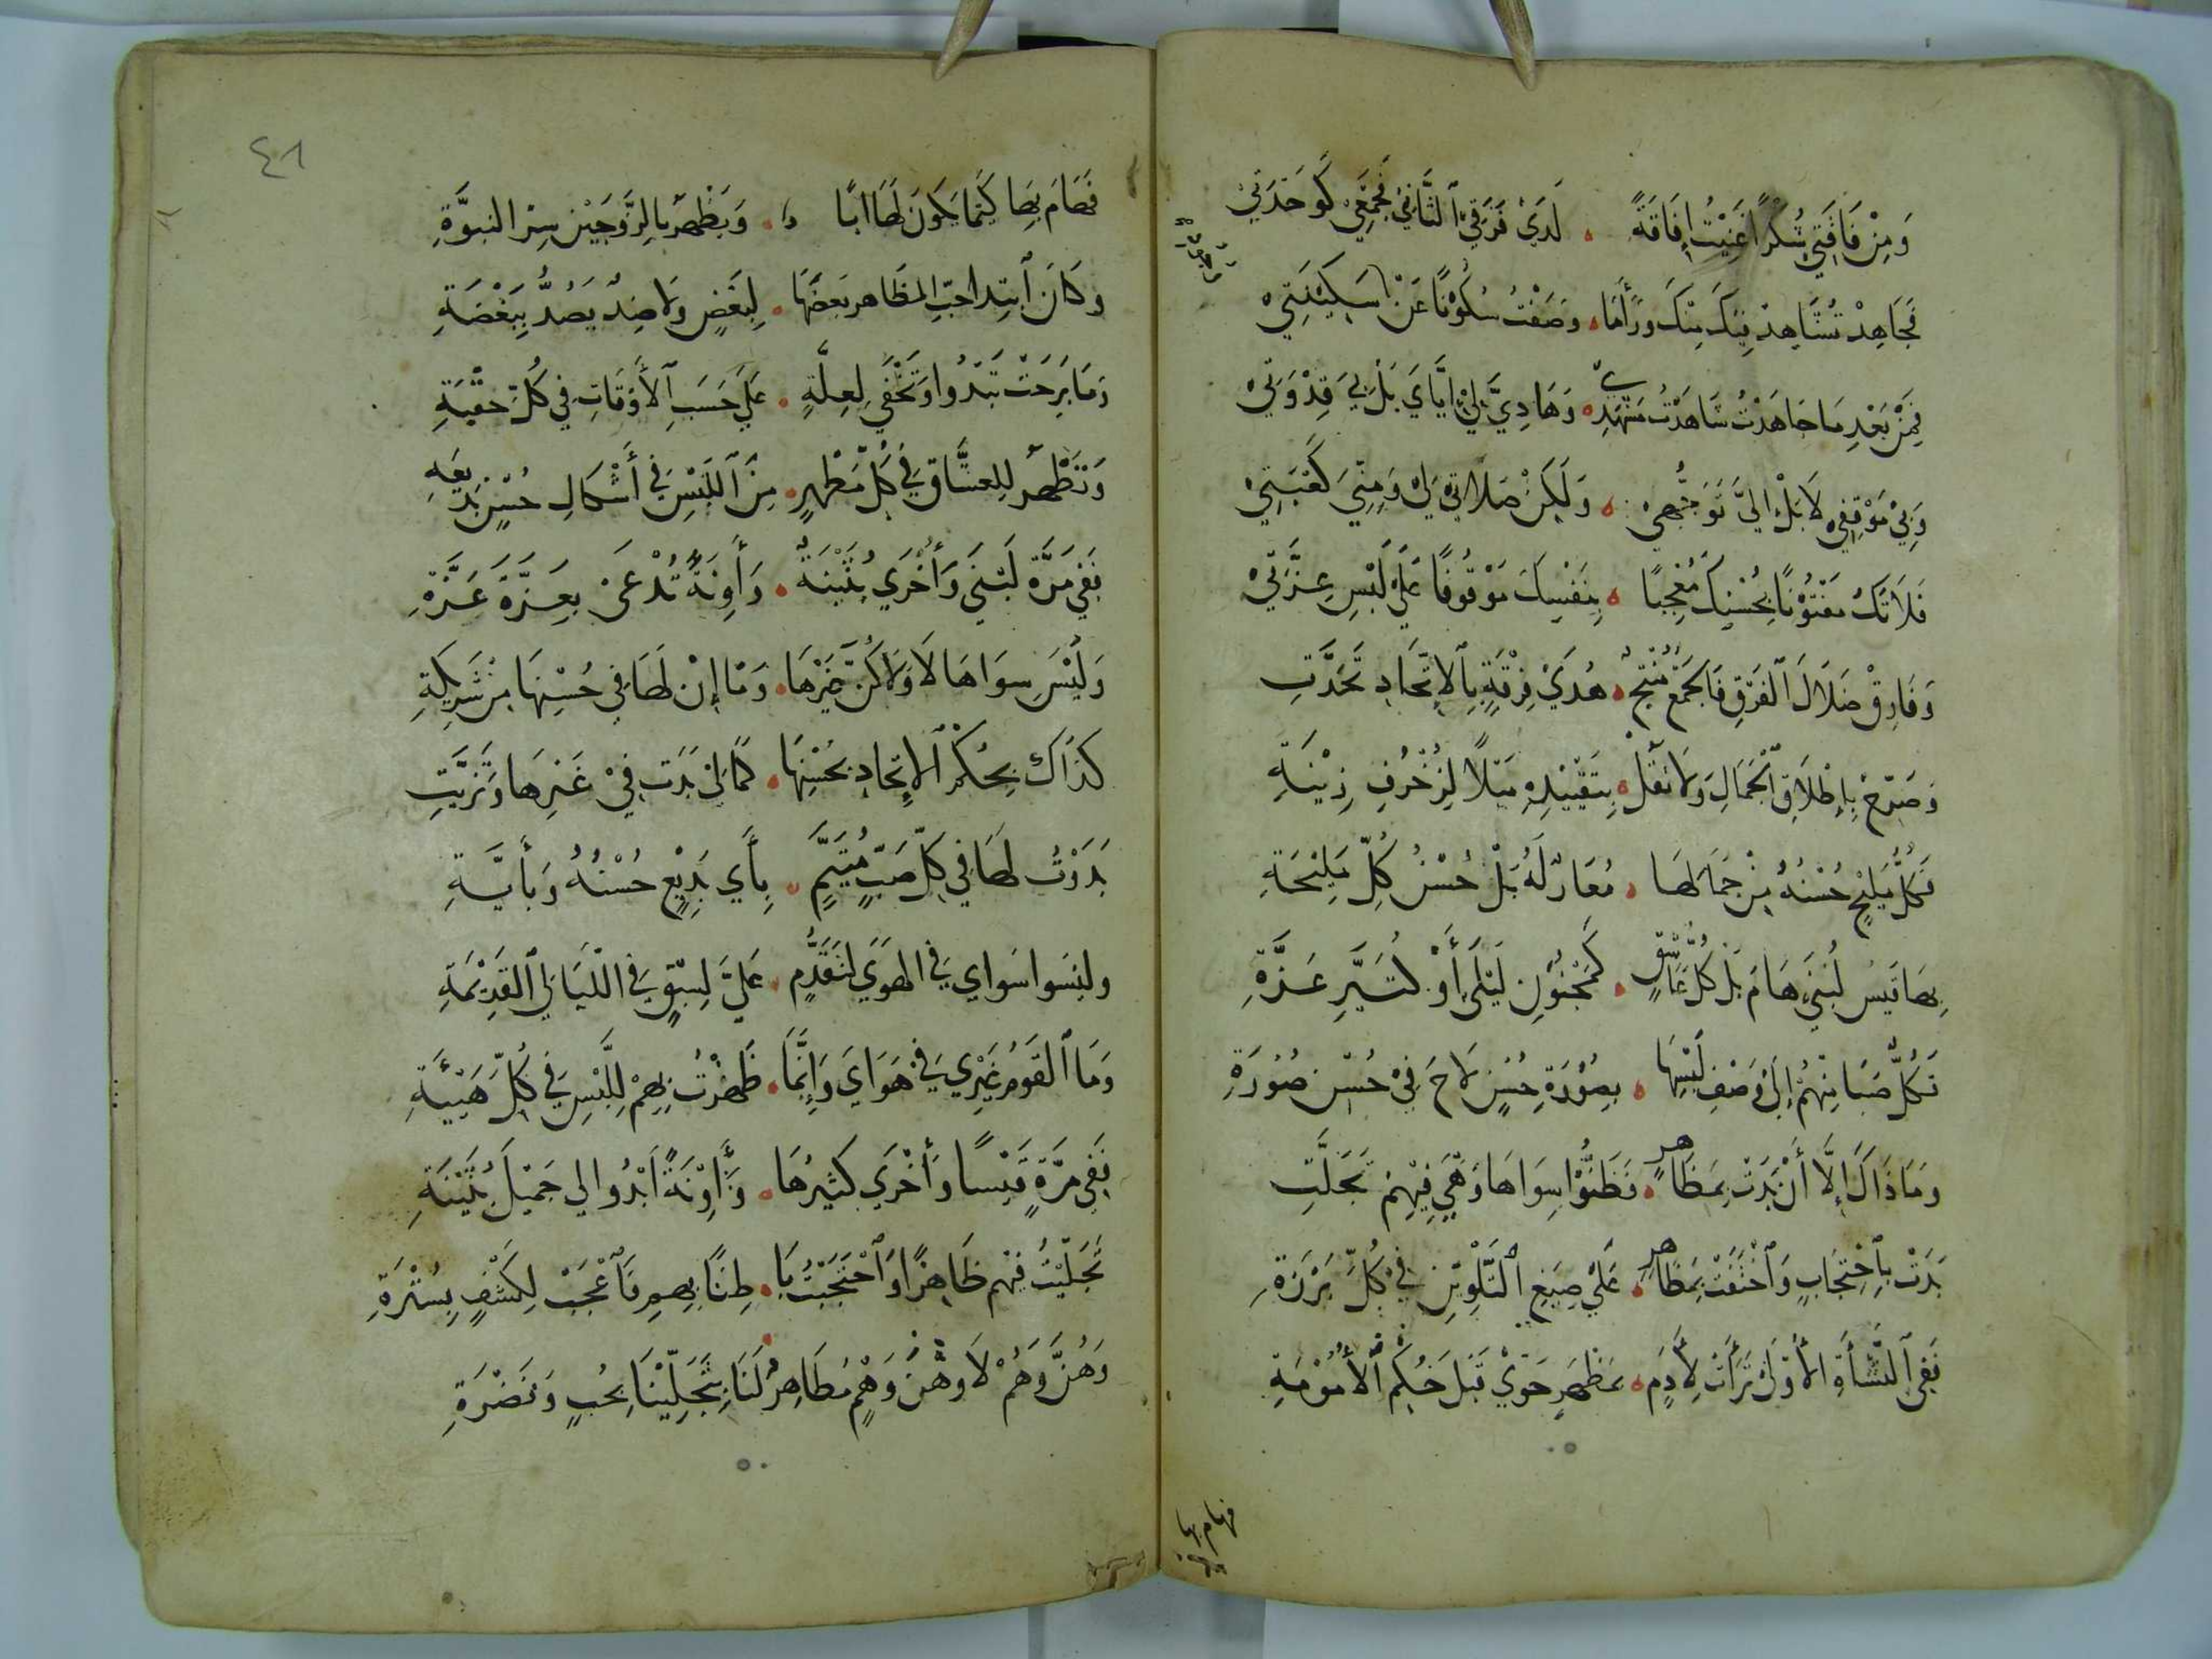 وَمِنْ فَاقَتِي سُكْرًا غَنِيْتُ إِفَاقَةً . لَدَيْ فَرْقِيَ ٱلثَّانِيْ فَجَمْعِيْ كَوَحْدَتِيْ
فَجَاهِدْ تُشَاهِدْ فِيْكَ مِنْكَ وَرَأَمَا . وَصَفْتُ سُكُوْنًا عَنْ سَكِيْنَتِيْ
فَمِنْ بَعْدِ مَا جَاهَدْتُ شَاهَدْتُ مَشْهَدِيْ . وَهَادِيَّ لِيْ إِيَّايَ بَلْ بِيَ قِدْوَتِيْ
وَبِيْ مَوْقِفِيْ لَا بَلْ إِلَيَّ تَوَجُّهِيْ . وَلَكِنْ صَلَاتِيْ لِيْ وَمِنِّيَ كَعْبَتِيْ
فَلَا تَكُ مَفْتُوْنًا بِحُسْنِكَ مُعْجِبًا . بِنَفْسِكَ مَوْقُوْفًا عَلَيْ لَبْسِ عِزَّتِيْ
وَفَارِقْ ضَلَالَ ٱلْفَرْقِ فَالْجَمْعُ مُنْتِجٌ . هُدَيْ فِرْقَةٍ بِٱلْاِتِّحَادِ تَحَدَّتِ
وَصَرِّحْ بِإِطْلَاقِ ٱلْجَمَالِ وَلَا تَقُلْ . بِتَقْيِيْدِهِ مَيْلًا لِزُخْرُفِ زِيْنَةِ
فَكُلُّ مَلِيْحٍ حُسْنُهُ مِنْ جَمَالِهَا . مُعَارٌ لَهُ بَلْ حُسْنُ كُلِّ مَلِيْحَةِ
بِهَا قَيْسُ لُبْنَيْ هَامَ بَلْ كُلُّ عَاشِقٍ . كَمَجْنُوْنِ لَيْلَى أَوْ كُثَيِّرِ عَزَّةِ
فَكُلُّ صَبَا مِنْهُمْ إِلَيْ وَصْفِ لَبْسِهَا . بِصُوْرَةِ حُسْنٍ لَاحَ فِيْ حُسْنِ صُوْرَةِ
وَمَا ذَاكَ إِلَّا أَنْ بَدَتْ بِمَظَاهِرٍ . فَظَنُّوْا سِوَاهَا وَهْيَ فِيْهِمْ تَجَلَّتِ
بَدَتْ بِٱحْتِجَابٍ وَٱخْتَفَتْ بِمَظَاهِرٍ . عَلَيْ صِبَغِ ٱلتَّلْوِيْنِ فِيْ كُلِّ بَرْزَةِ
فَفِي ٱلنَّشْأَةِ الْأُوْلَى تَرَأَتْ لِآدَمٍ . بِمَظْهَرِ حَوَّيْ قَبْلَ حُكْمِ ٱلْأُمُوْمَةِ
فهام بها
٤١
فَهَامَ بِهَا كَيْمَا يَكُونَ لَهَا ابًا . وَيَظْهَرَ بِالزَّوْجَيْنِ سِرُّ النبوَّةِ
وَكَانَ ٱبْتِدا حُبِّ المَظَاهر بَعْضَهَا . لِبَعْضٍ وَلَا ضِدٌّ يَصُدُّ بِبَغْضَةِ
وَمَا بَرِحَتْ تَبْدُوا وَتَخْفَى لِعِلَّةٍ . عَلَيْ حَسَبِ ٱلْأَوْقَاتِ فِي كُلِّ حِقْبَةِ
وَتَظْهَرُ لِلعشَّاقِ فِي كُلِّ مَظْهرٍ . مِنَ ٱللَّبْسِ فِي أَشْكَالِ حُسْنٍ بَدِيعَةِ
فَفِي مَرَّةٍ لُبْنَى وَأُخْرَي بُثَيْنَةٌ . وَآوِنَةً تُدْعَى بِعَزَّةَ عَزَّةِ
وَلَيْسَ سِوَاهَا لَا وَلَا كُنَّ غَيْرَهَا . وَمَا إِنْ لَهَا فِي حُسْنِهَا مِنْ شَرِيكَةِ
كَذَاكَ بِحُكْمِ ٱلاِتِّحَادِ بِحُسْنِهَا . كَمَا لِيْ بَدَتْ فِيْ غَيْرِهَا وَتَزَيَّتِ
بَدَوْتُ لَهَا فِي كُلِّ صَبٍّ مُتَيَّمٍ . بِأَيِّ بَدِيْعٍ حُسْنُهُ وَبِأَيَّةِ
وليسَوا سوَاي فِي الهَوَي لتَقَدُّمٍ . عَلَيَّ لِسَبْقٍ فِي اللَّيَالِي ٱلقَدِيْمَةِ
وَمَا ٱلقَوْمُ غَيْرِي فِي هَوَايَ وَإِنَّمَا . ظَهَرْتُ بِهِمْ لِلَّبْسِ فِي كُلِّ هَيْئَةِ
فَفِي مَرَّةٍ قَيْسًا وَأُخْرَي كثيرَهَا . وَآوِنَةً أَبْدُوا لي جَمِيْلَ بُثَيْنَةِ
تَجَلَّيْتُ فيْهم ظَاهِرًا وَٱحْتَجَبْتُ بَا . طِنًا بِهِمِ فَٱعْجَبْ لِكَشْفٍ بِسُتْرَةِ
وَهُنَّ وَهُمْ لَا وَهْنَ وَهْمٍ مَظَاهِرٌ . لَنَا بِتَجَلِّيْنَا بِحُبٍ وَنَضْرَةِ